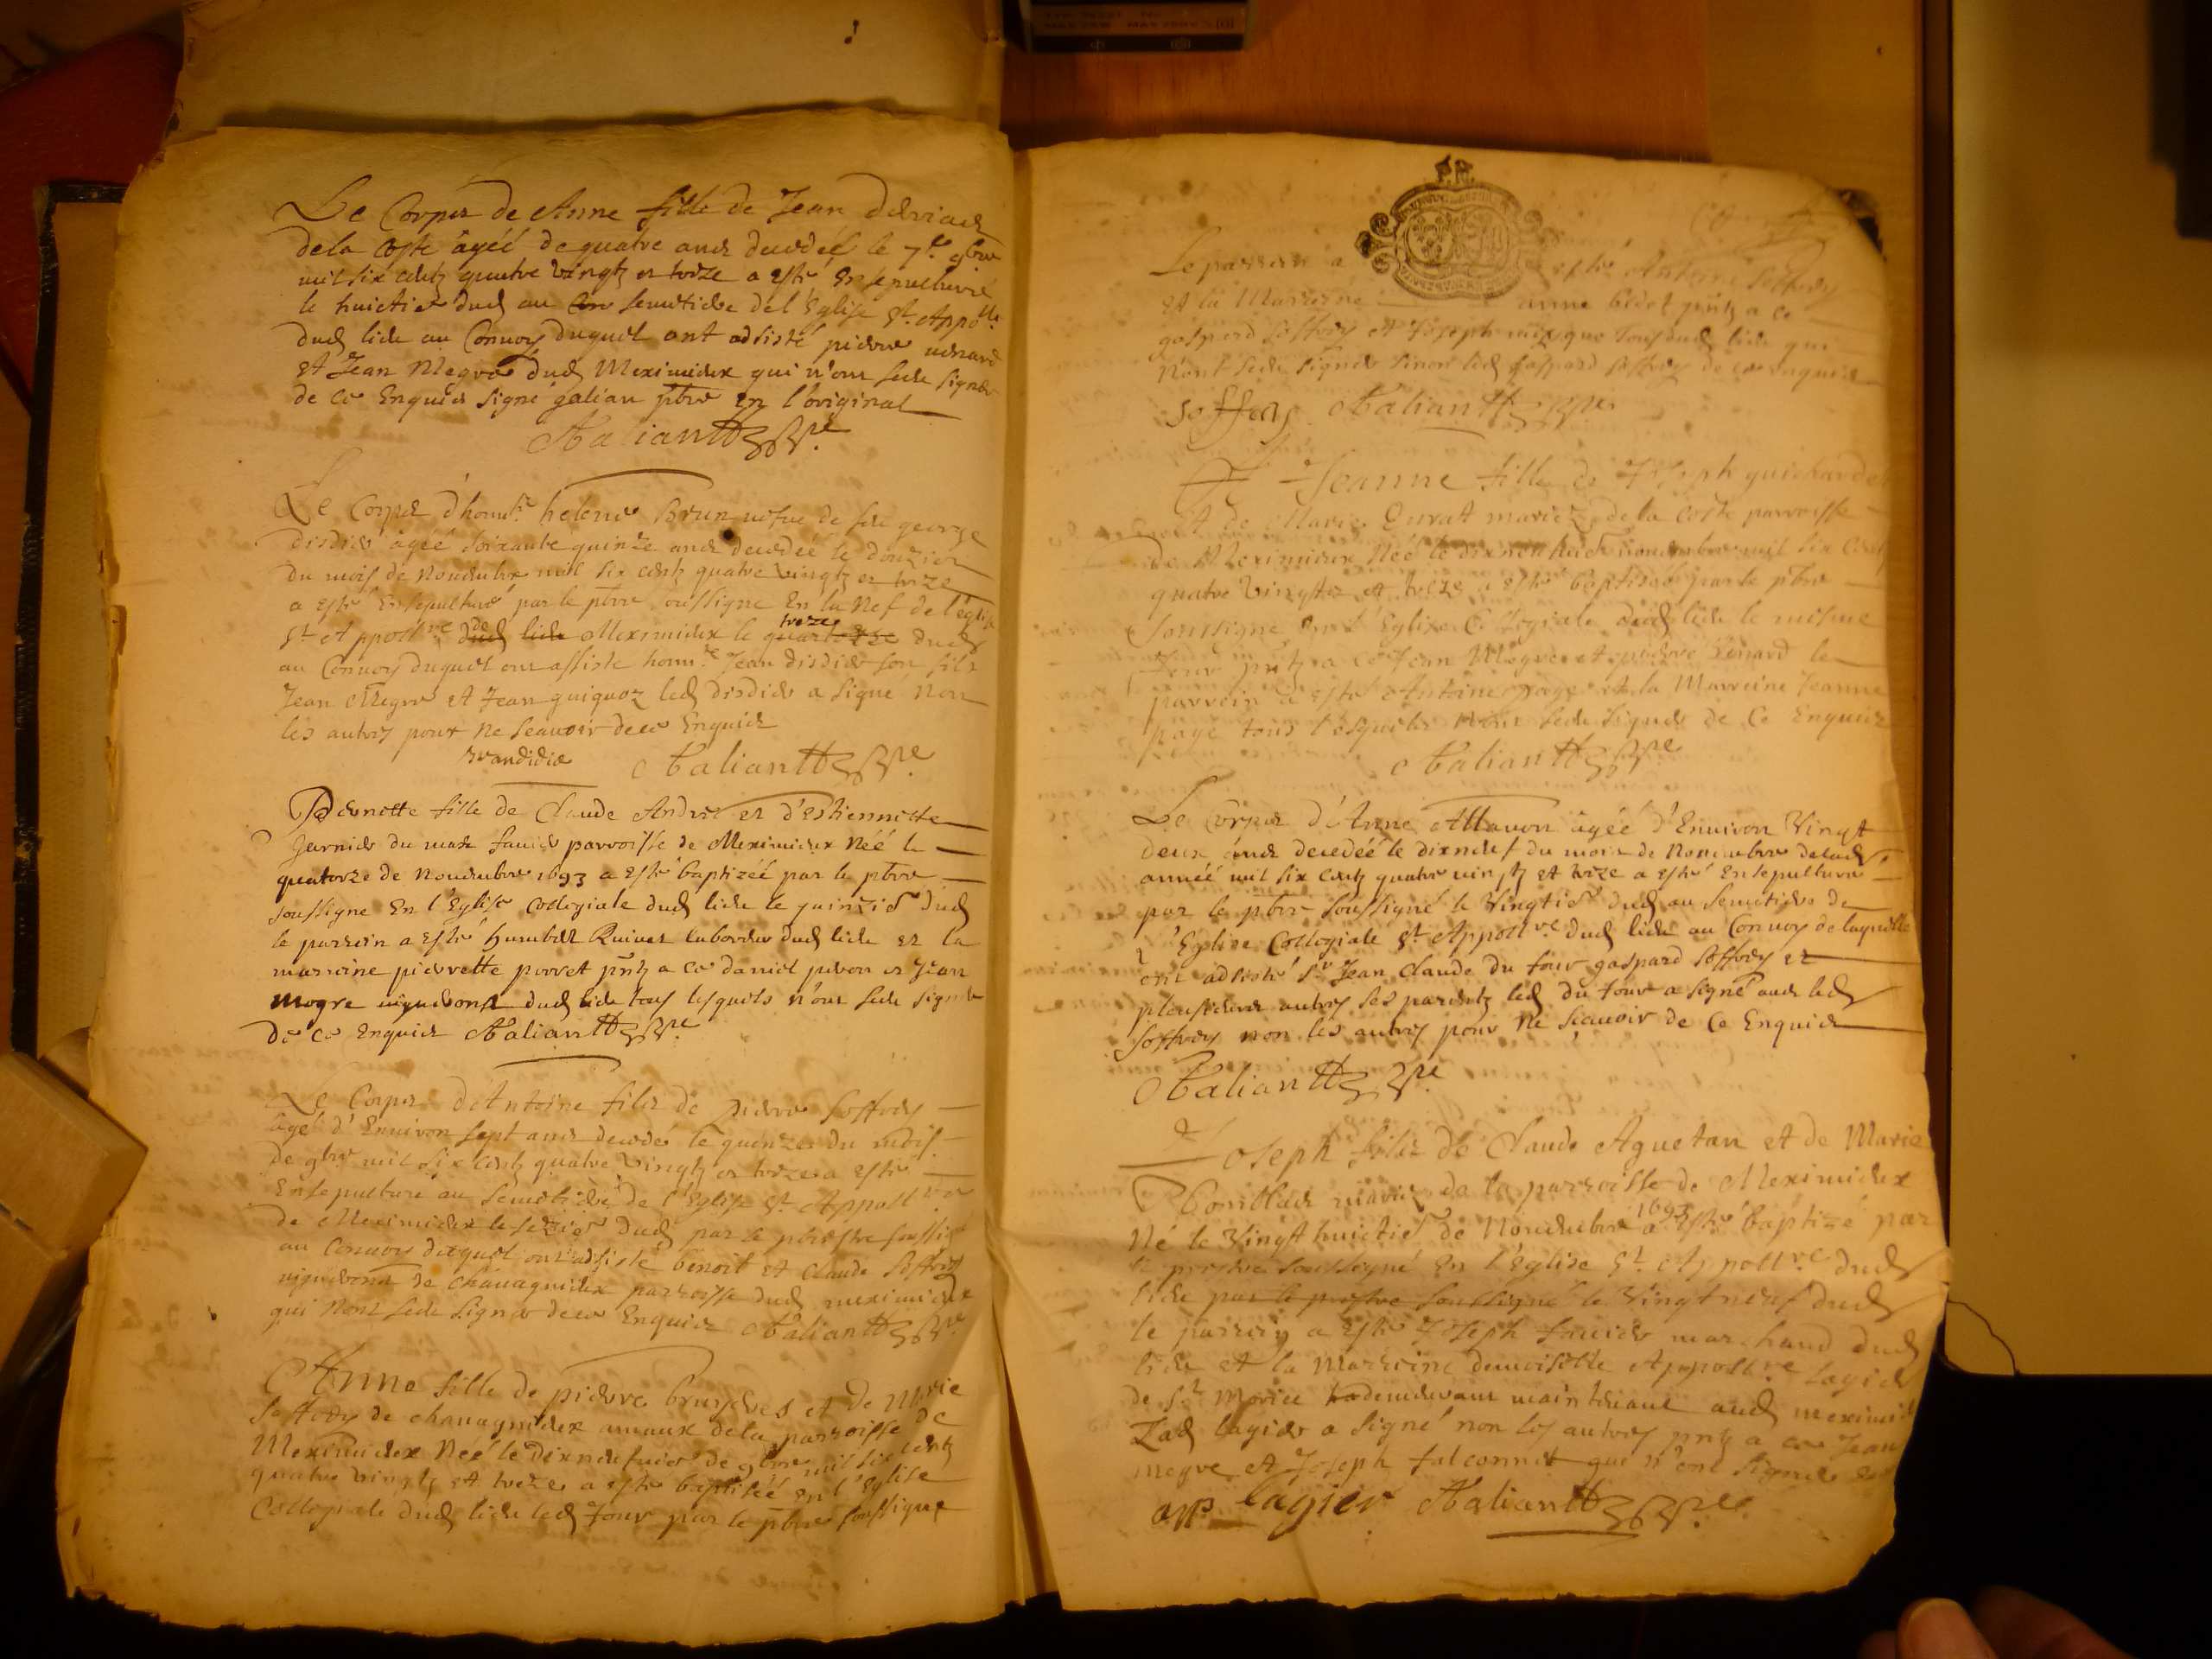 Le Corps de Anne fille de Jean
de la Coste agéé de quatre ans decedéé le 7.e 9bre
mil six centz quatre vingtz et treze a esté Ensepulturé
le huictier dud au Semetiere del Eglise St. Appo.lle
dud lieu au Convoy duquel ont adsisté pierre
et Jean Megre dud Meximieux qui n'ont sceu signer
de ce Enquis signé galian ptre en l'original
Galiant ptre
Le Corps d'honn.te helene Brun vefve de feu george
disdier agéé soixante quinze ans decedéé le douzier
du mois de Novembre mil six centz quatre vingtz et treze
a esté Ensepulturé par le ptre soussigne En la Nef de l'église
St. Appoll.re de Meximieux le treze dud
au Convoy duquel ont assisté honn.e Jean disdier son fils
Jean Megre et Jean guiguoz led disdier a signé Non
les autres pour ne scavoir de ce Enquis
Galiant ptre
fille de Claude André et d'Estiennette
Garnier du mas favier parroisse de Meximieux Néé le
quatorze de Novembre 1693 a esté baptizéé par le ptre
soussigne En l'Eglise Collegiale dud lieu le quinzie dud
le parrein a esté humbert laboureur dud lieu et la
marreine pierrette perret pntz a ce daniel et Jean
Megre vignerons dud lieu tous lesquels n'ont sceu signer
de ce Enquis Galiant ptre
Le Corps d'Antoine fils de pierre Soffrey
agé d'Environ sept ans decedé le quinze du mois
de 9bre mil six centz quatre vingtz et treze a esté
Ensepulturé au Semetiere de l'Eglise St. Appoll.re
de Meximieux le sezie dud par le prestre soussigné
au Convoy duquel ont adsisté benoit et Claude Soffrey
vignerons de chavagnieux parroisse dud meximieux
qui nont sceu signer de ce Enquis Galiant ptre
Anne fille de pierre bruyeres et de Marie
Soffrey de chavagnieux de la parroisse de
Meximieux Néé le dixneufvie de 9bre mil six centz
quatre vingtz et treze a esté baptiséé en l'Eglise
Collegiale dud lieu led Jour par le ptre soussigné
Le parrein a esté Antoine Soffrey
et la Marreine anne pntz a ce
gaspard Soffrey et Joseph tous dud lieu qui
n'ont sceu signer sinon led gaspard Soffrey de ce enquis
Soffrey Galiant ptre
Jeanne fille de Joseph guichardet
et de Marie Durat mariez de la Coste parroisse
de Meximieux Néé le dixneuf novembre mil six centz
quatre vingtz et treze a esté baptiséé par le ptre
soussigné En l'Eglise Collegiale dud lieu le mesme
Jour pntz a ce Jean Megre et pierre le
parrein a esté Antoine page et la Marreine Jeanne
page tous lesquels n'ont sceu signer de ce Enquis
Galiant ptre
Le Corps d'Anne Allavon agéé d'Environ Vingt
deux ans decedéé le dixneuf du mois de Novembre delad
annéé mil six centz quatre vingtz et treze a esté Ensepulturé
par le ptre soussigné le Vingtie dud au Semetiere de
l'Eglise Collegiale St. Appoll.re dud lieu au Convoy de laquelle
ont adsisté Sr. Jean Claude du four gaspard Soffrey et
plusieurs autres ses parentz led du four a signé avec led
Soffrey non les autres pour ne sçavoir de ce Enquis
Galiant ptre
Joseph fils de Claude Aguetan et de Marie
mariez de la parroisse de Meximieux
Né le Vingt huictie de Novembre 1693 a esté baptizé par
le prestre soussigné en l'Eglise St. Appoll.re dud
lieu par le prestre soussigné le Vingt neuf dud
le parrein a esté Joseph favier marchand dud
lieu et la Marreine demoiselle Appoll.re lagier
de St. Morice demeurant maintenant aud meximieux
Lad lagier a signé non les autres pntz a ce Jean
megre et Joseph falconnet qui n'ont signé
app. lagier Galiant ptre